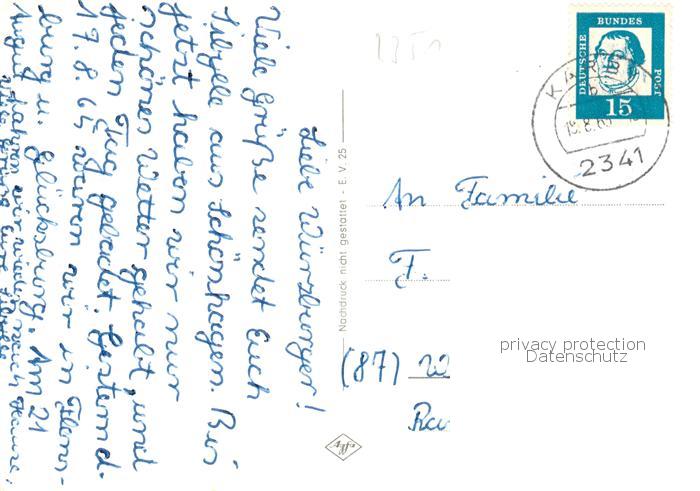 Liebe Würzburger!
Viele Grüße sendet Euch
Sibylle aus Schönhagen. Bis
jetzt haben wir nur
schönes Wetter gehabt, und
jeden Tag gebadet. Gestern d.
17.8.65 waren wir in Flens-
burg u. Glücksburg. Am 21
August fahren wir wieder nach Hause.
Viele Grüße Eure Sibylle
Nachdruck nicht gestattet - E. V. 25
DEUTSCHE
BUNDES
POST
15
2341
An Familie
F.
(87) W
Ra
privacy protection
Datenschutz
Agfa